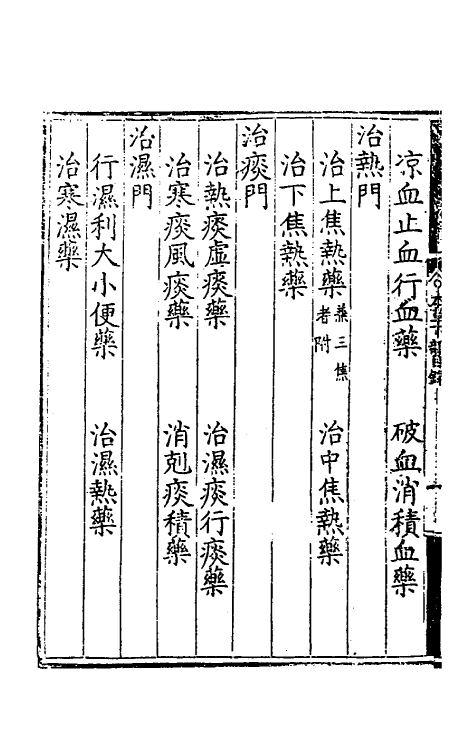 凉血止血行血藥　破血消積血藥
治熱門
治上焦熱藥兼三焦者附　治中焦熱藥
治下焦熱藥
治痰門
治熱痰虛痰藥　治濕痰行痰藥
治寒痰風痰藥　消剋痰積藥
治濕門
行濕利大小便藥　治濕熱藥
治寒濕藥